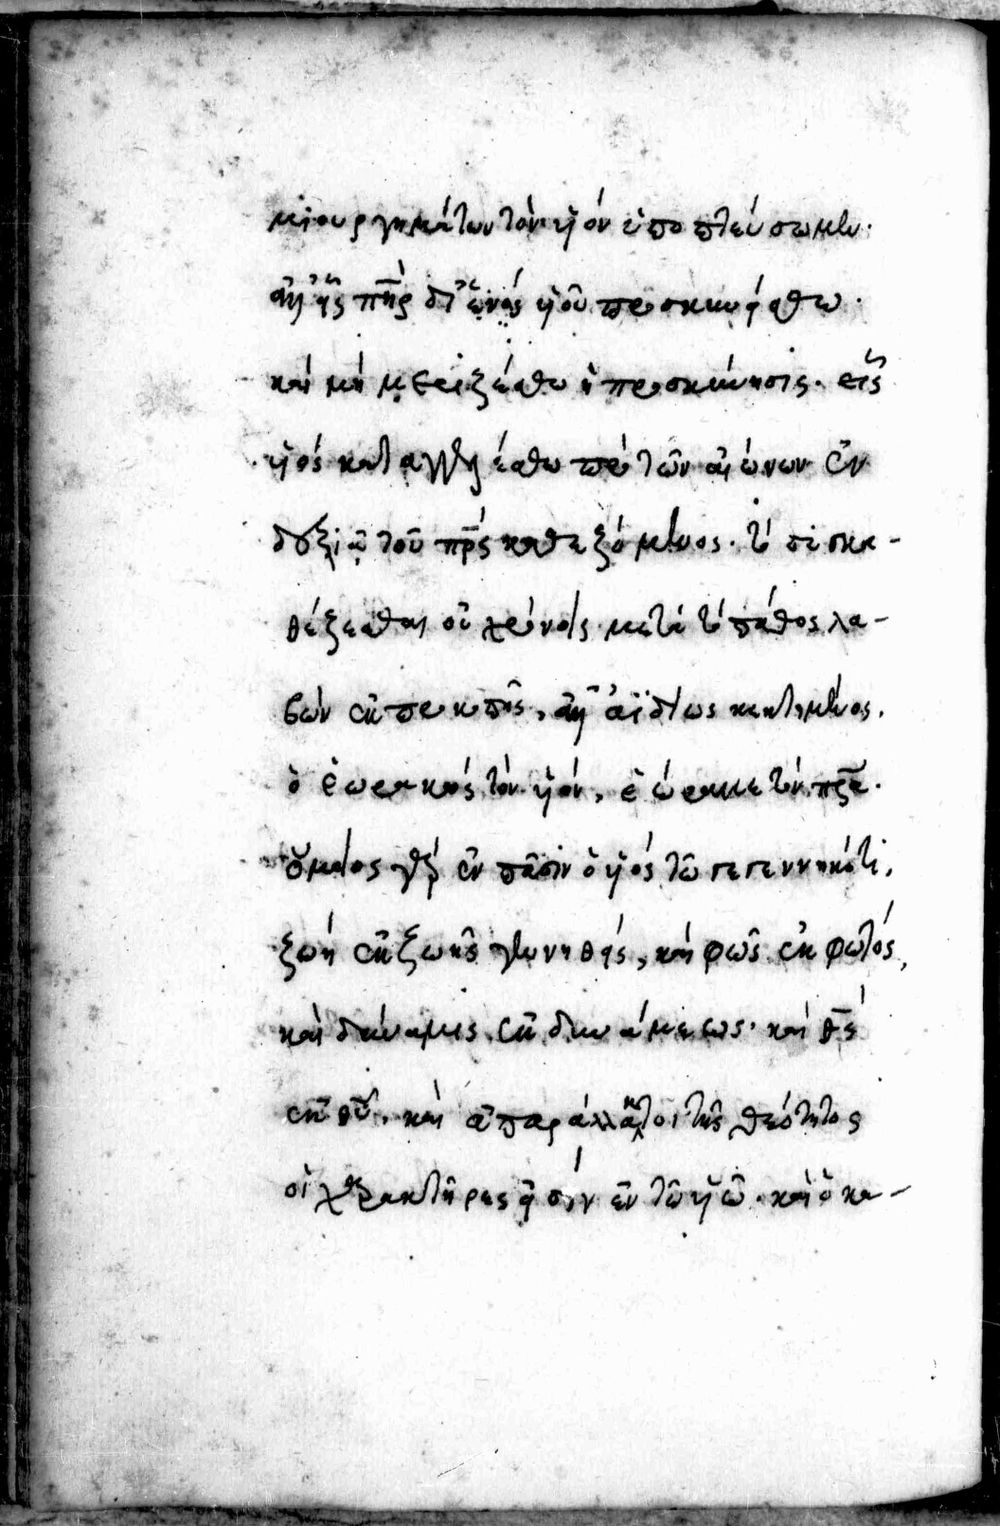 μιουργημάτων τὸν υἱὸν ὑποπτεύσωμεν.
ἀλλ' εἷς πῆρ δι' ἑνὸς υἱοῦ προσκυνείσθω.
καὶ μὴ μεριζέσθω ἡ προσκύνησις. εἷς
υἱὸς καταγγελλέσθω πρὸ τῶν αἰώνων ἐν
δεξιᾷ τοῦ πρς καθεζόμενος. τό τε συγκα-
θέζεσθαι οὐ χρόνοις μετὰ τὸ πάθος λα-
βὼν ἐκ προκοπῆς, ἀλλ' ἀϊδίως κεκτημένος.
ὁ ἑωρακὼς τὸν υἱόν, ἑώρακε τὸν πρα.
ὅμοιος γὰρ ἐν πᾶσιν ὁ υἱὸς τῶ γεγεννηκότι,
ζωὴ ἐκ ζωῆς γεννηθείς, καὶ φῶς ἐκ φωτός,
καὶ δύναμις ἐκ δυνάμεως. καὶ θς
ἐκ θυ. καὶ ἀπαράλλακτοι τῆς θεότητος
οἱ χαρακτῆρες εἰσὶν ἐν τῶ υἱῶ. καὶ ὁ κα-